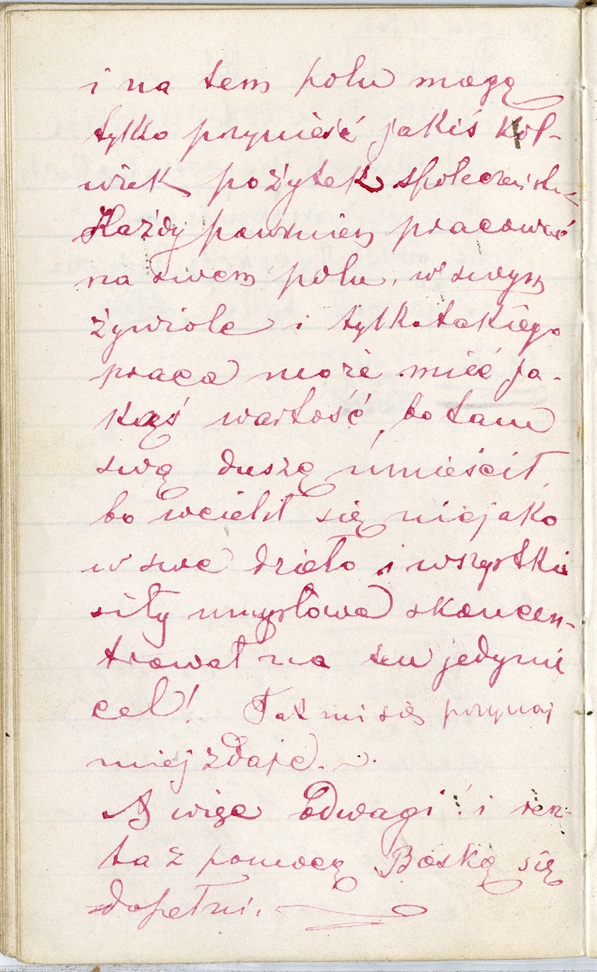 i na tem polu mogą
tylko przynieść jakiś kol-
wiek pożytek społeczeństw-
Każdy powinien pracować
na swem polu, w swym
żywiole i tylko takiego
praca może mieć ja-
kąś wartość, bo tam
swą duszę umieścił,
bo wcielił się niejako
w swe dzieło i wszystkie
siły umysłowe skoncen-
trował na ten jedynie
cel! Tak mi się przynaj
mniej zdaje.
A więc odwagi! i resz-
ta z pomocą Boską się
dopełni.